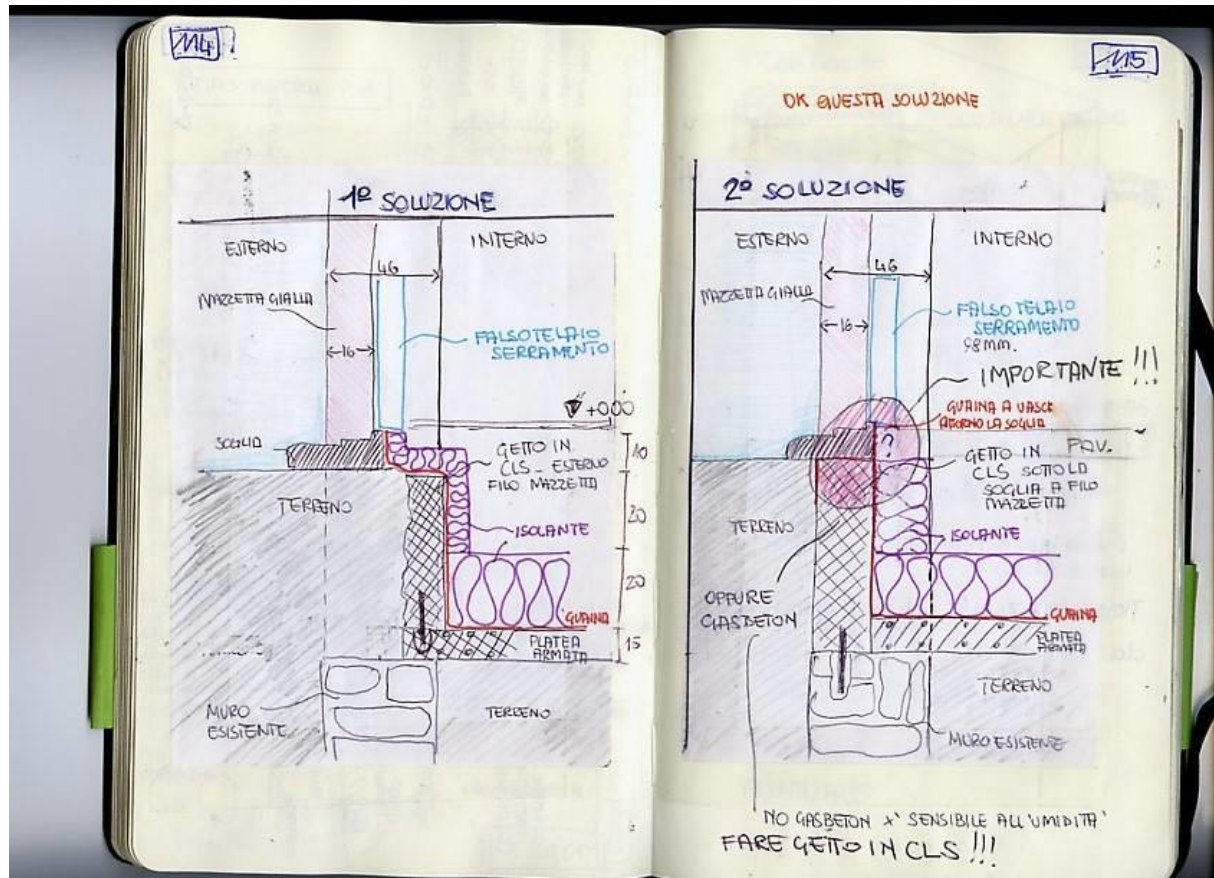 114
1ª SOLUZIONE
ESTERNO
INTERNO
46
MAZZETTA GIALLA
16
FALSO TELAIO
SERRAMENTO
+000
SOGLIA
GETTO IN
CLS - ESTERNO
FILO MAZZETTA
10
TERRENO
20
ISOLANTE
20
GUAINA
PLATEA
ARMATA
15
MURO
ESISTENTE
TERRENO
115
OK QUESTA SOLUZIONE
2ª SOLUZIONE
ESTERNO
INTERNO
46
MAZZETTA GIALLA
16
FALSO TELAIO
SERRAMENTO
98mm.
IMPORTANTE !!!
GUAINA A VASCA
ATTORNO LA SOGLIA
?
PAV.
GETTO IN
CLS SOTTO LA
SOGLIA A FILO
MAZZETTA
TERRENO
ISOLANTE
OPPURE
GASBETON
GUAINA
PLATEA
ARMATA
TERRENO
MURO ESISTENTE
NO GASBETON X' SENSIBILE ALL'UMIDITA'
FARE GETTO IN CLS !!!